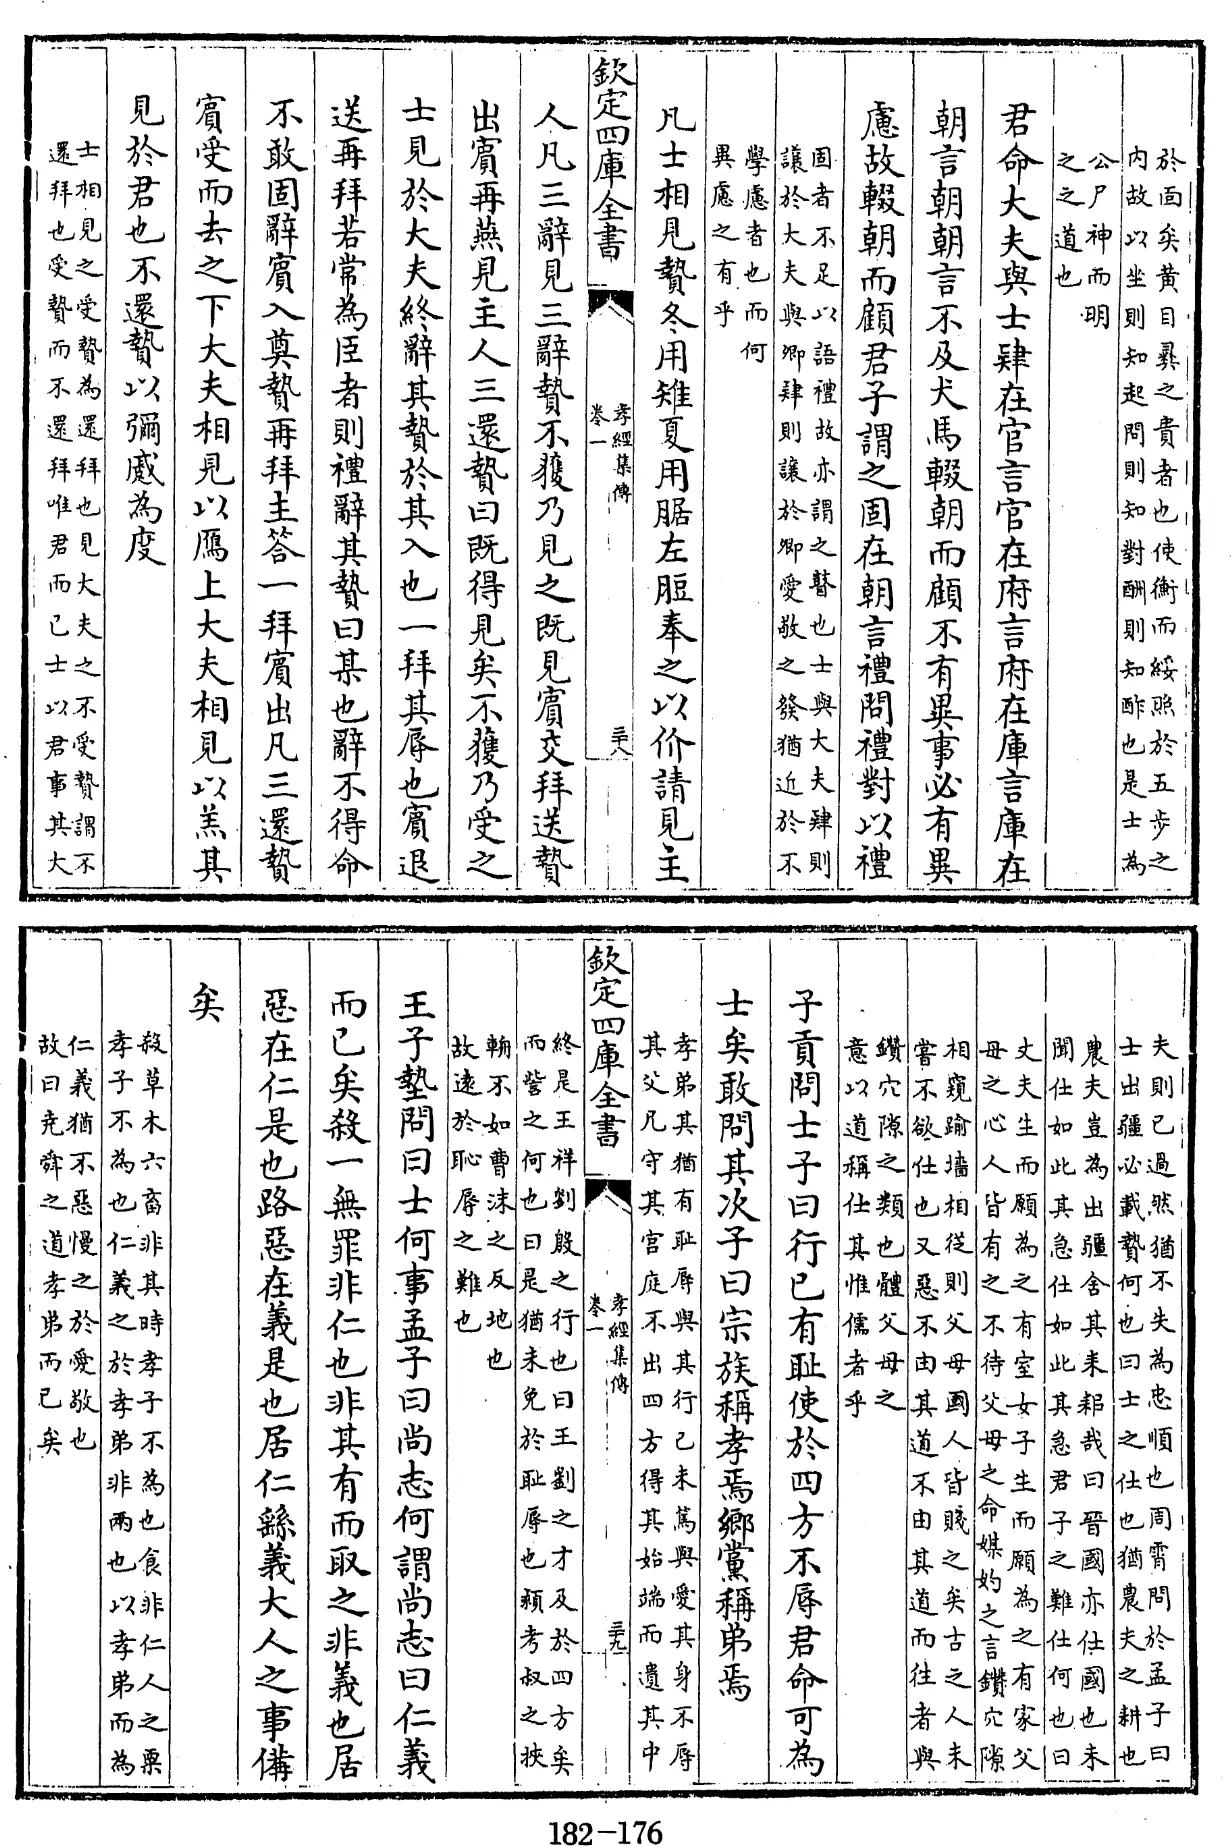 於面矣黄目彛之貴者也使衡而綏照於五步之
内故以坐則知起問則知對酬則知酢也是士為
公尸神而明
之之道也
君命大夫與士肄在官言官在府言府在庫言庫在
朝言朝朝言不及犬馬輟朝而顧不有異事必有異
慮故輟朝而顧君子謂之固在朝言禮問禮對以禮
固者不足以語禮故亦謂之瞽也士與大夫肄則
讓於大夫與卿肄則讓於卿愛敬之發猶近於不
學慮者也而何
異慮之有乎
凡士相見贄冬用雉夏用腒左脰奉之以价請見主
欽定四庫全書
孝經集傳
卷一
三十八
人凡三辭見三辭贄不獲乃見之既見賔交拜送贄
出賔再燕見主人三還贄曰既得見矣不獲乃受之
士見於大夫終辭其贄於其入也一拜其辱也賔退
送再拜若常為臣者則禮辭其贄曰某也辭不得命
不敢固辭賔入奠贄再拜主答一拜賔出凡三還贄
賔受而去之下大夫相見以鴈上大夫相見以羔其
見於君也不還贄以彌蹙為度
士相見之受贄為還拜也見大夫之不受贄謂不
還拜也受贄而不還拜唯君而已士以君事其大
夫則已過然猶不失為忠順也周霄問於孟子曰
士出疆必載贄何也曰士之仕也猶農夫之耕也
農夫豈為出疆舍其耒耜哉曰晉國亦仕國也未
聞仕如此其急仕如此其急君子之難仕何也曰
丈夫生而願為之有室女子生而願為之有家父
母之心人皆有之不待父母之命媒妁之言鑽穴隙
相窺踰墻相從則父母國人皆賤之矣古之人未
嘗不欲仕也又惡不由其道不由其道而往者與
鑽穴隙之類也體父母之
意以道稱仕其惟儒者乎
子貢問士子曰行已有耻使於四方不辱君命可為
士矣敢問其次子曰宗族稱孝焉鄉黨稱弟焉
孝弟其猶有耻辱與其行己未篤與愛其身不辱
其父凡守其宫庭不出四方得其始端而遺其中
欽定四庫全書
孝經集傳
卷一
三十九
終是王祥劉殷之行也曰王劉之才及於四方矣
而訾之何也曰是猶未免於耻辱也潁考叔之挾
輈不如曹沬之反地也
故遠於恥辱之難也
王子墊問曰士何事孟子曰尚志何謂尚志曰仁義
而已矣殺一無罪非仁也非其有而取之非義也居
惡在仁是也路惡在義是也居仁繇義大人之事備
矣
殺草木六畜非其時孝子不為也食非仁人之粟
孝子不為也仁義之於孝弟非兩也以孝弟而為
仁義猶不惡慢之於愛敬也
故曰堯舜之道孝弟而已矣
182-176